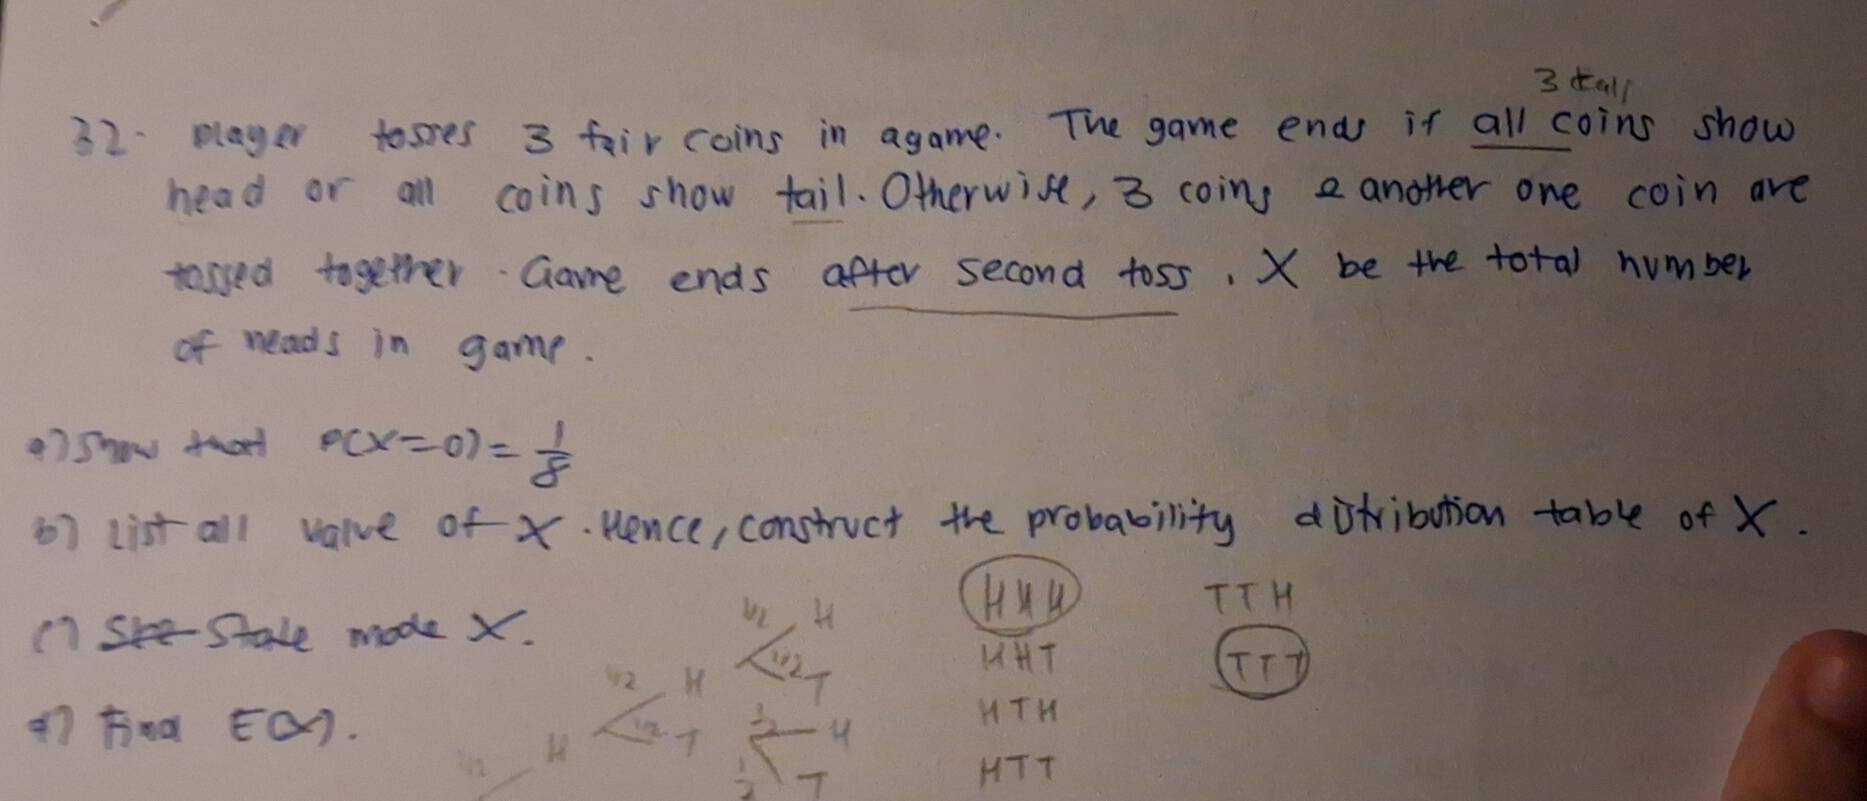 3 tail
32. player tosses 3 fair coins in a game. The game ends if all coins show
head or all coins show tail. Otherwise, 3 coins & another one coin are
tossed together. Game ends after second toss. X be the total number
of heads in game.
a) Show that P(X=0) = 1/8
b) List all value of X. Hence, construct the probability distribution table of X.
c) State mode X.
d) Find E(X).
1/2 H
1/2 T
1/2 H
1/2 T
1/2 H
1/2 T
1/2 H
HHH
HHT
HTH
HTT
TTH
TTT